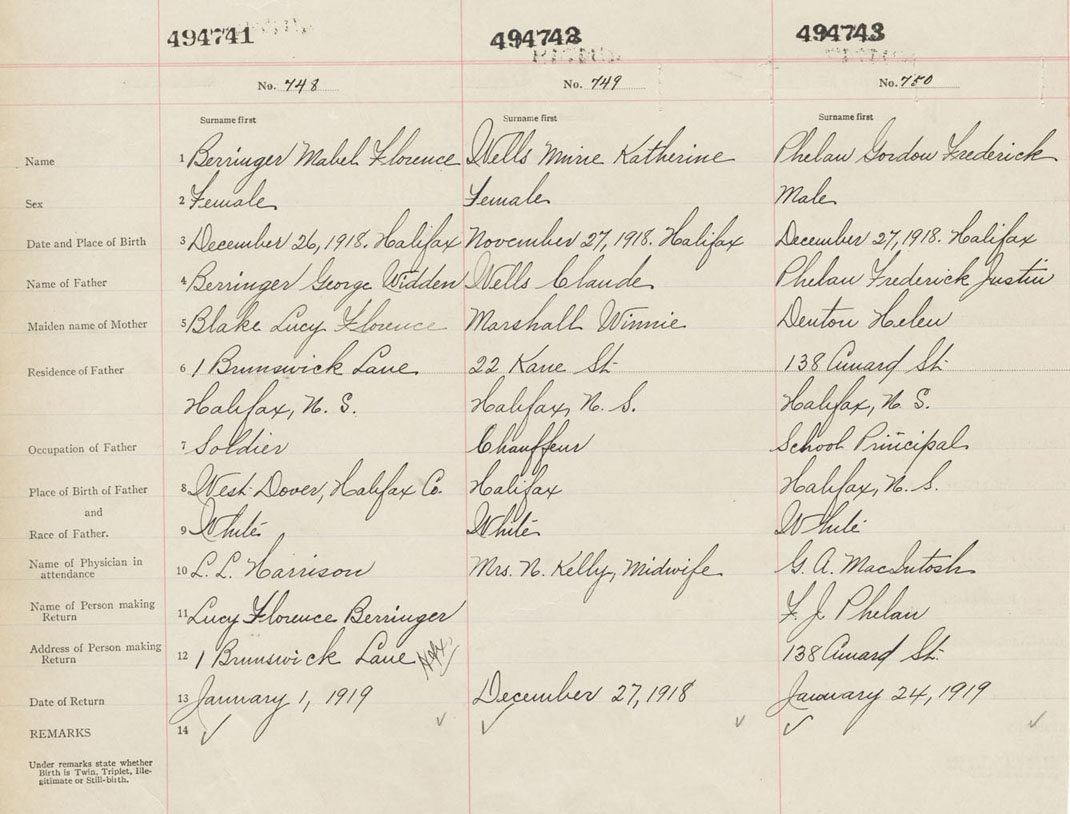 494741 494742 494743
No. 748 No. 749 No. 750
Surname first Surname first Surname first
Name 1 Berringer Mabel Florence Wells Minie Katherine Phelan Gordon Frederick
Sex 2 Female Female Male
Date and Place of Birth 3 December 26, 1918. Halifax November 27, 1918. Halifax December 27, 1918. Halifax
Name of Father 4 Berringer George Widden Wells Claude Phelan Frederick Justin
Maiden name of Mother 5 Blake Lucy Florence Marshall Winnie Denton Helen
Residence of Father 6 1 Brunswick Lane 22 Kane St. 138 Cunard St.
Halifax, N. S. Halifax, N. S. Halifax, N. S.
Occupation of Father 7 Soldier Chauffeur School Principal
Place of Birth of Father 8 West Dover, Halifax Co. Halifax Halifax, N. S.
and
Race of Father. 9 White White White
Name of Physician in
attendance 10 L. L. Harrison Mrs. N. Kelly, Midwife G. A. MacIntosh
Name of Person making
Return 11 Lucy Florence Berringer F. J. Phelan
Address of Person making
Return 12 1 Brunswick Lane Hfx. 138 Cunard St.
Date of Return 13 January 1, 1919 December 27, 1918 January 24, 1919
REMARKS 14
Under remarks state whether
Birth is Twin, Triplet, Ille-
gitimate or Still-birth.